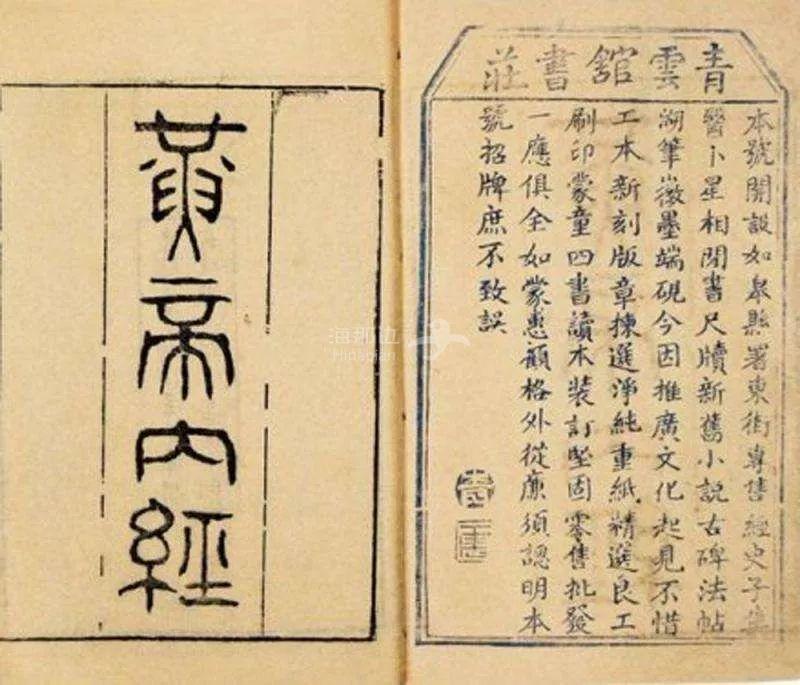 青雲舘書莊
本號開設如皋縣署東街專售經史子集
醫卜星相閒書尺牘新舊小說古碑法帖
湖筆徽墨端硯今因推廣文化起見不惜
工本新刻版章揀選淨純重紙精選良工
刷印蒙童四書讀本裝訂堅固零售批發
一應俱全如蒙惠顧格外從廉須認明本
號招牌庶不致誤
黃帝內經
海那边
Hinabian